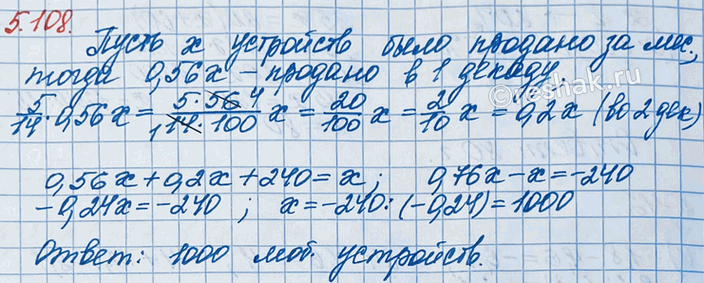 5.108.
Пусть x устройств было продано за мес.,
тогда 0,56x – продано в 1 декаду.
5/14 · 0,56x = 5·56 4/1 14·100 x = 20/100 x = 2/10 x = 0,2x (во 2 дек)
0,56x + 0,2x + 240 = x; 0,76x – x = –240
–0,24x = –240 ; x = –240 : (–0,24) = 1000
Ответ: 1000 моб. устройств.
reshak.ru